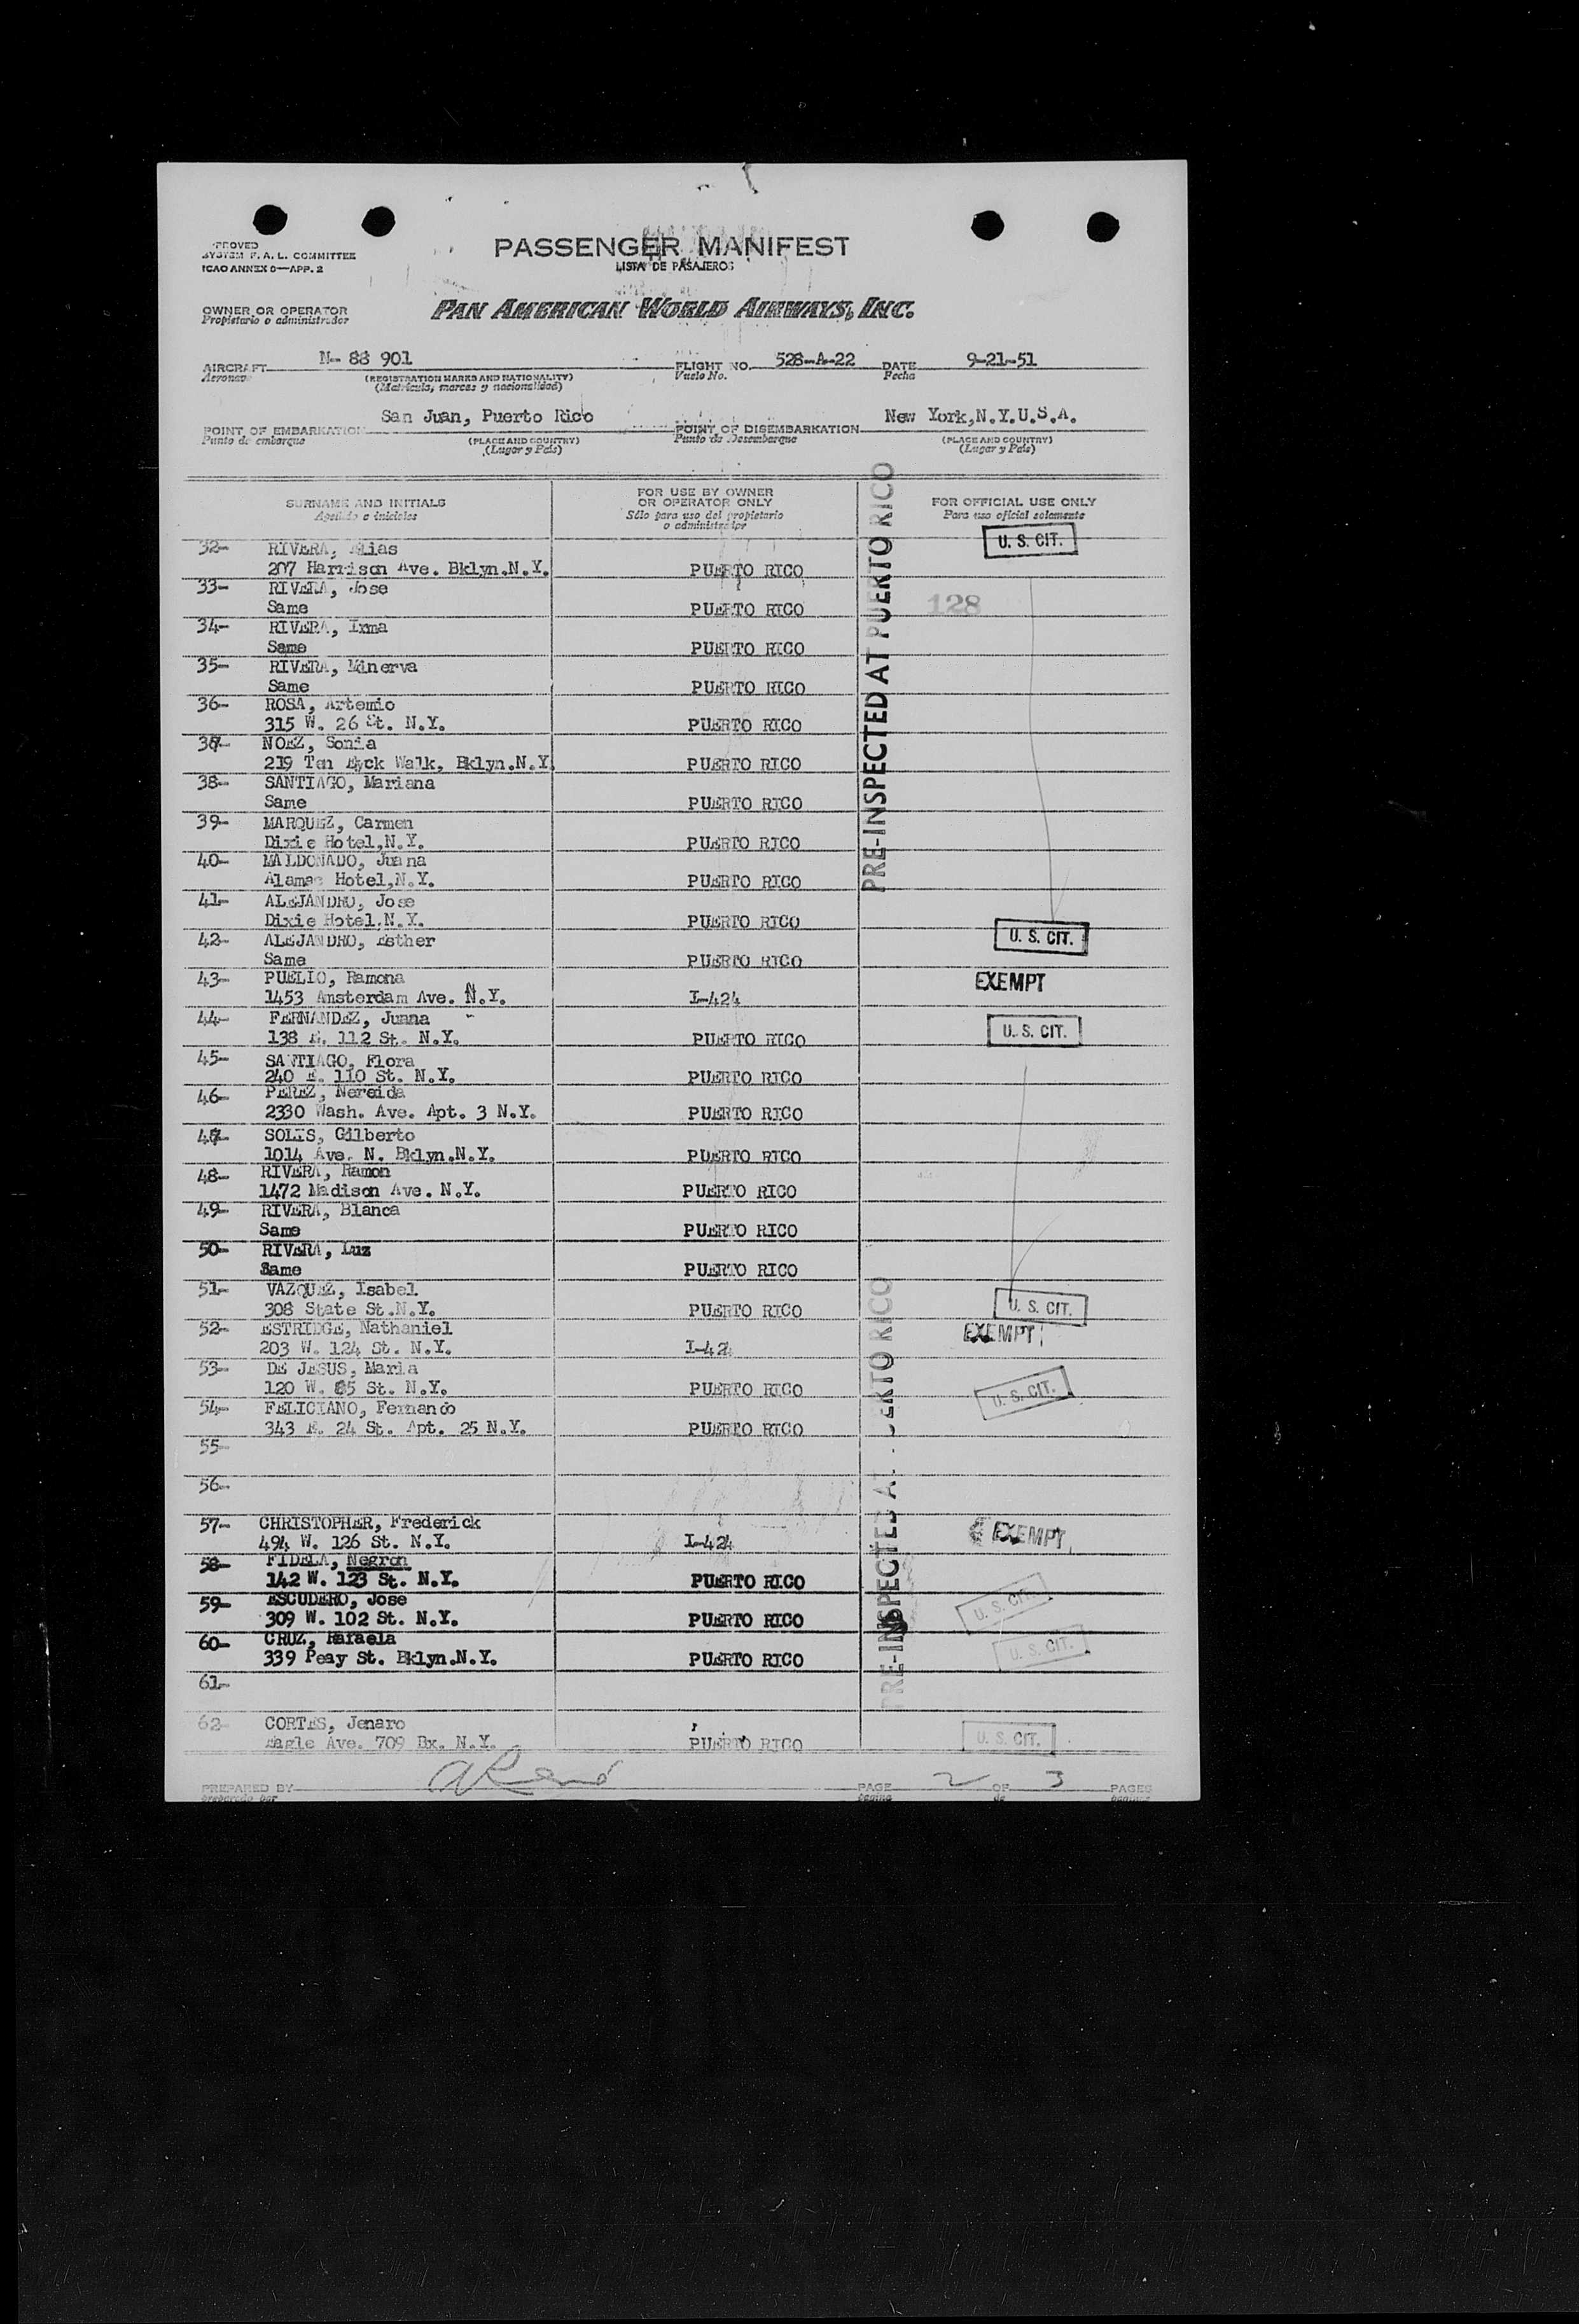 PASSENGER MANIFEST
LISTA DE PASAJEROS
SYSTEM F. A. L. COMMITTEE
ICAO ANNEX 9—APP. 2
OWNER OR OPERATOR
Propietario o administrador
PAN AMERICAN WORLD AIRWAYS, INC.
AIRCRAFT N- 88 901 FLIGHT NO. 528-A-22 DATE 9-21-51
Aeronave (REGISTRATION MARKS AND NATIONALITY) Vuelo No. Fecha
(Matricula, marcas y nacionalidad)
POINT OF EMBARKATION San Juan, Puerto Rico POINT OF DISEMBARKATION New York,N.Y.U.S.A.
Punto de embarque (PLACE AND COUNTRY) Punto de Desembarque (PLACE AND COUNTRY)
(Lugar y País) (Lugar y País)
SURNAME AND INITIALS
Apellido e iniciales
FOR USE BY OWNER
OR OPERATOR ONLY
Sólo para uso del propietario
o administrador
FOR OFFICIAL USE ONLY
Para uso oficial solamente
PRE-INSPECTED AT PUERTO RICO
32- RIVERA, Elias U. S. CIT.
207 Harrison Ave. Bklyn.N.Y. PUERTO RICO
33- RIVERA, Jose 128
Same PUERTO RICO
34- RIVERA, Irma
Same PUERTO RICO
35- RIVERA, Minerva
Same PUERTO RICO
36- ROSA, Artemio
315 W. 26 St. N.Y. PUERTO RICO
37- NOEZ, Sonia
219 Ten Eyck Walk, Bklyn.N.Y. PUERTO RICO
38- SANTIAGO, Mariana
Same PUERTO RICO
39- MARQUEZ, Carmen
Dixie Hotel,N.Y. PUERTO RICO
40- MALDONADO, Juana
Alamac Hotel,N.Y. PUERTO RICO
41- ALEJANDRO, Jose
Dixie Hotel.N.Y. PUERTO RICO
42- ALEJANDRO, Esther U. S. CIT.
Same PUERTO RICO
43- PUELIO, Ramona EXEMPT
1453 Amsterdam Ave. N.Y. I-424
44- FERNANDEZ, Juana U. S. CIT.
138 E. 112 St. N.Y. PUERTO RICO
45- SANTIAGO, Flora
240 E. 110 St. N.Y. PUERTO RICO
46- PEREZ, Nereida
2330 Wash. Ave. Apt. 3 N.Y. PUERTO RICO
47- SOLIS, Gilberto
1014 Ave. N. Bklyn.N.Y. PUERTO RICO
48- RIVERA, Ramon
1472 Madison Ave. N.Y. PUERTO RICO
49- RIVERA, Blanca
Same PUERTO RICO
50- RIVERA, Luz
Same PUERTO RICO
51- VAZQUEZ, Isabel U. S. CIT.
308 State St.N.Y. PUERTO RICO
PRE-INSPECTED AT PUERTO RICO
52- ESTRIDGE, Nathaniel EXEMPT
203 W. 124 St. N.Y. I-424
53- DE JESUS, Maria U. S. CIT.
120 W. 85 St. N.Y. PUERTO RICO
54- FELICIANO, Fernando
343 E. 24 St. Apt. 25 N.Y. PUERTO RICO
55-
56-
57- CHRISTOPHER, Frederick EXEMPT
494 W. 126 St. N.Y. I-424
58- FIDELA, Negron
142 W. 123 St. N.Y. PUERTO RICO
59- ESCUDERO, Jose U. S. CIT.
309 W. 102 St. N.Y. PUERTO RICO
60- CRUZ, Rafaela U. S. CIT.
339 Peay St. Bklyn.N.Y. PUERTO RICO
61-
62- CORTES, Jenaro U. S. CIT.
Eagle Ave. 709 Bx. N.Y. PUERTO RICO
PREPARED BY PAGE 2 OF 3 PAGES
preparado por página de páginas